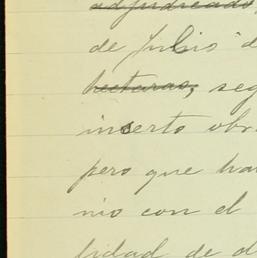 adjudicado,
de Julio d
hectaras, seg
inserto obr
pero que ha
nio con el
lidad de d